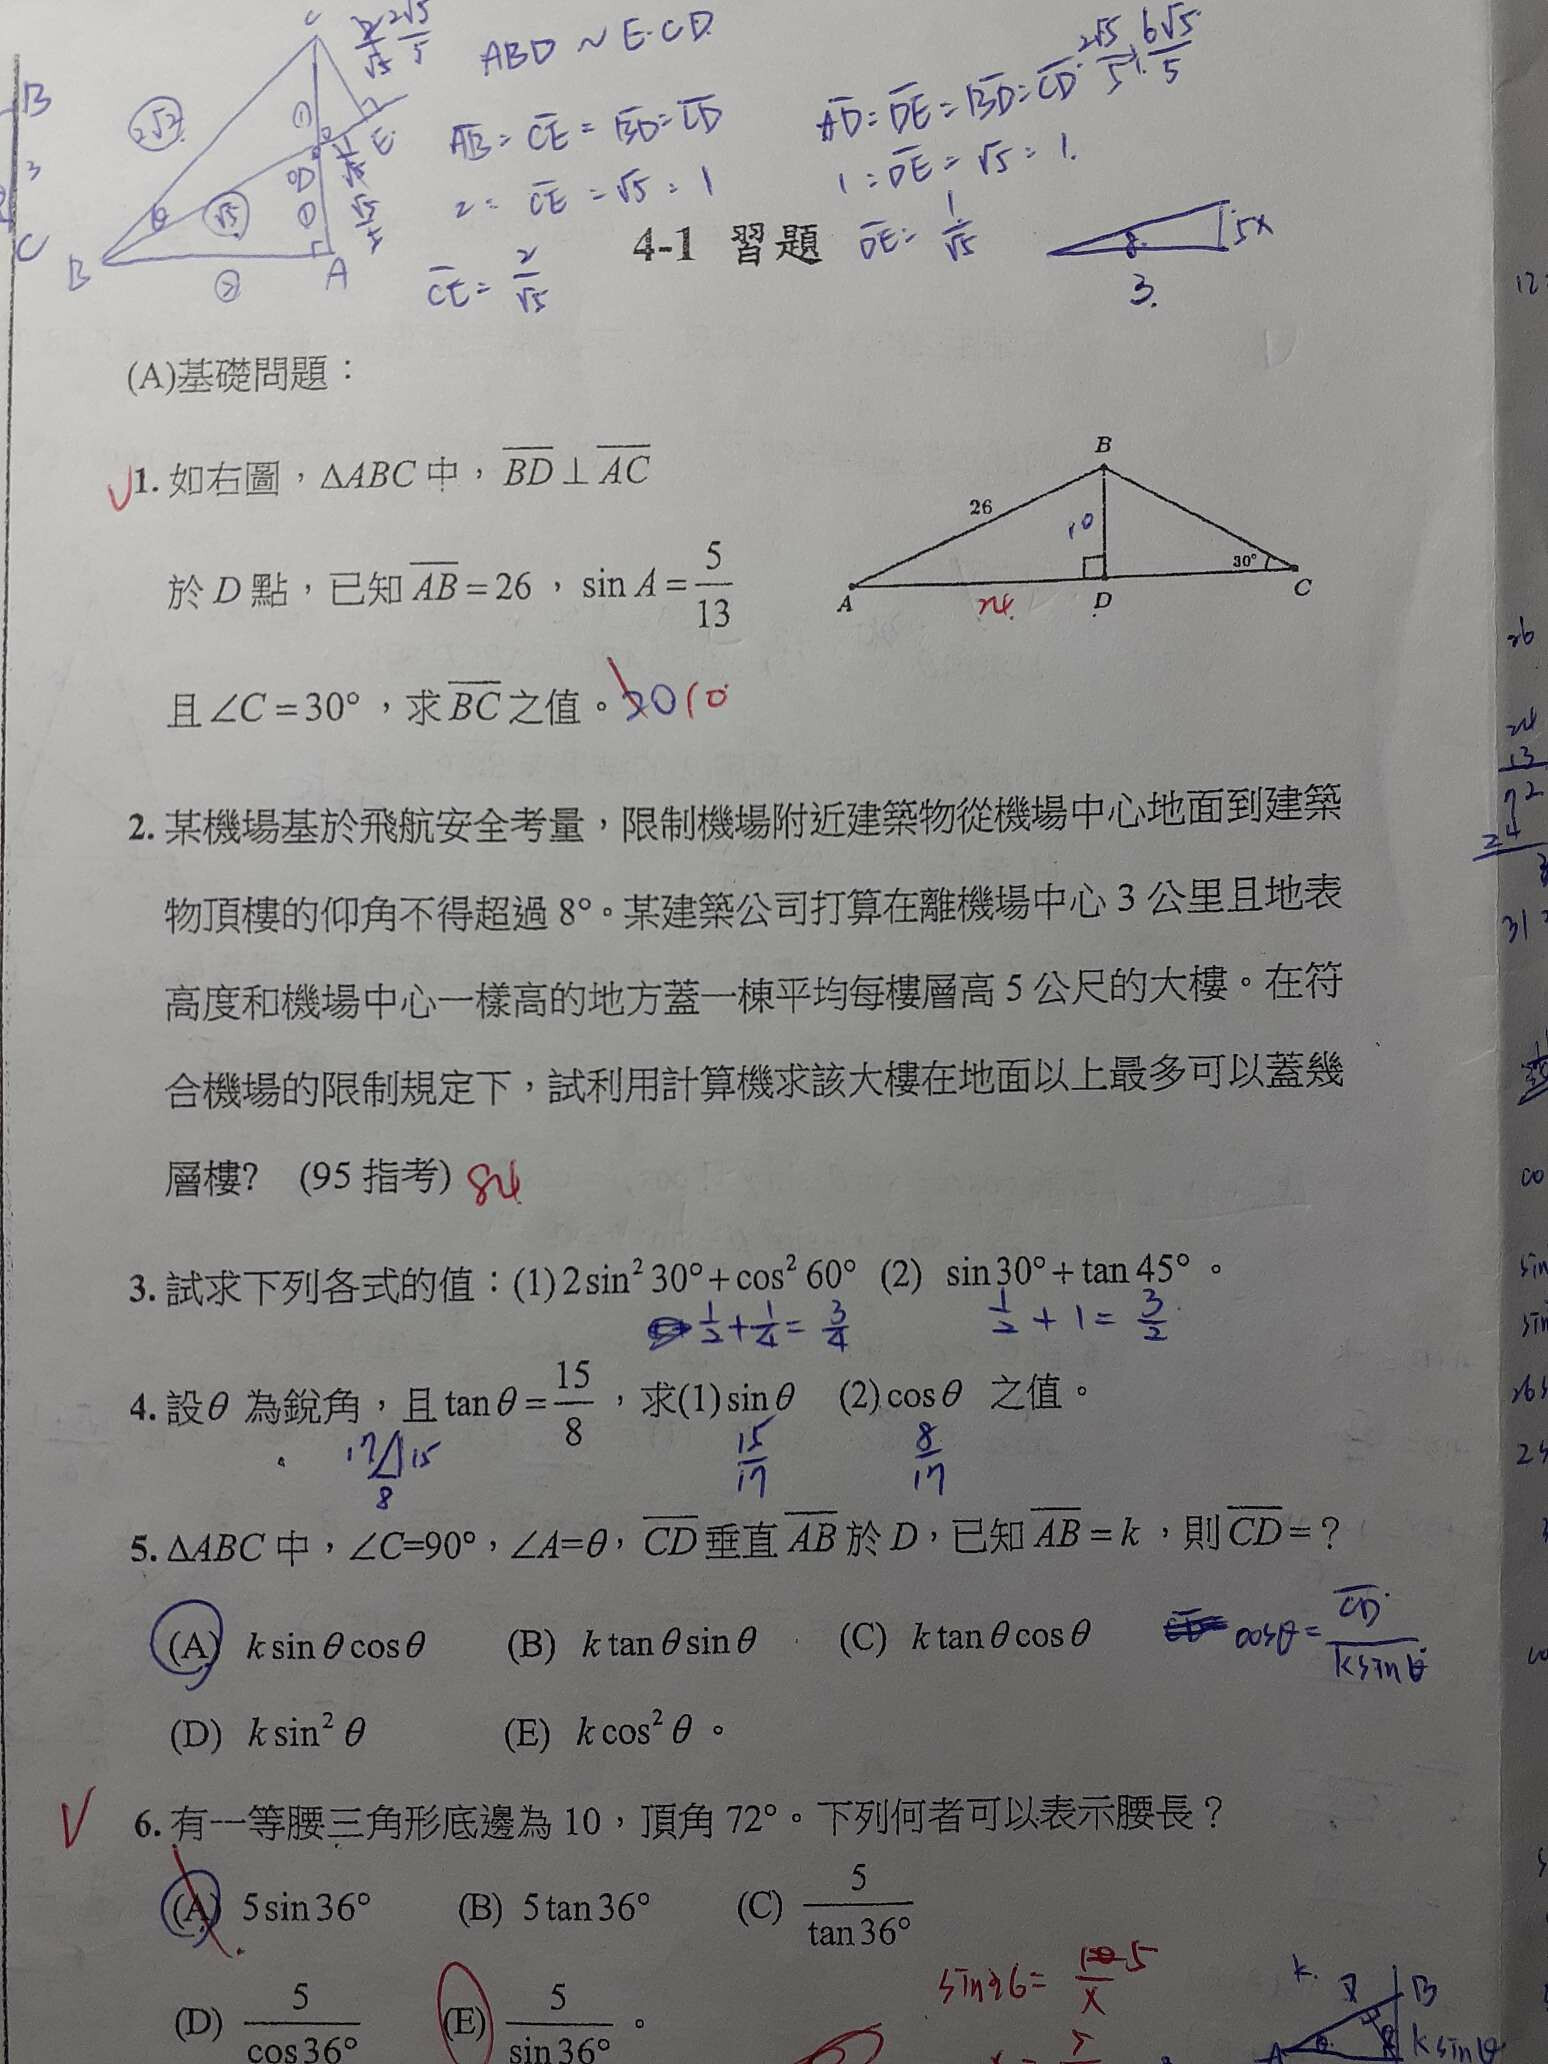 ABD ~ ECD
AB : CE = BD : CD
2 : CE = √5 : 1
CE = 2/√5
AD : DE = BD : CD
1 : DE = √5 : 1
DE = 1/√5
2√5/5
6√5/5
2√2
√5
C
B
A
E
5x
8°
3
4-1 習題
(A)基礎問題：
1. 如右圖，ΔABC 中，BD⊥AC
於 D 點，已知 AB = 26，sin A = 5/13
且 ∠C = 30°，求 BC 之值。20 10
B
26
10
30°
A
24
D
C
2. 某機場基於飛航安全考量，限制機場附近建築物從機場中心地面到建築
物頂樓的仰角不得超過 8°。某建築公司打算在離機場中心 3 公里且地表
高度和機場中心一樣高的地方蓋一棟平均每樓層高 5 公尺的大樓。在符
合機場的限制規定下，試利用計算機求該大樓在地面以上最多可以蓋幾
層樓? (95 指考) 84
3. 試求下列各式的值：(1) 2sin² 30° + cos² 60° (2) sin 30° + tan 45°。
1/2 + 1/4 = 3/4
1/2 + 1 = 3/2
4. 設 θ 為銳角，且 tan θ = 15/8，求(1) sin θ (2) cos θ 之值。
17 15
8
15/17
8/17
5. ΔABC 中，∠C=90°，∠A=θ，CD 垂直 AB 於 D，已知 AB = k，則 CD = ？
(A) k sin θ cos θ (B) k tan θ sin θ (C) k tan θ cos θ
cosθ = CD/ksinθ
(D) k sin² θ (E) k cos² θ。
6. 有一等腰三角形底邊為 10，頂角 72°。下列何者可以表示腰長？
(A) 5 sin 36° (B) 5 tan 36° (C) 5/tan 36°
(D) 5/cos 36° (E) 5/sin 36°。
sin36 = 5/x
B
A
k sinθ